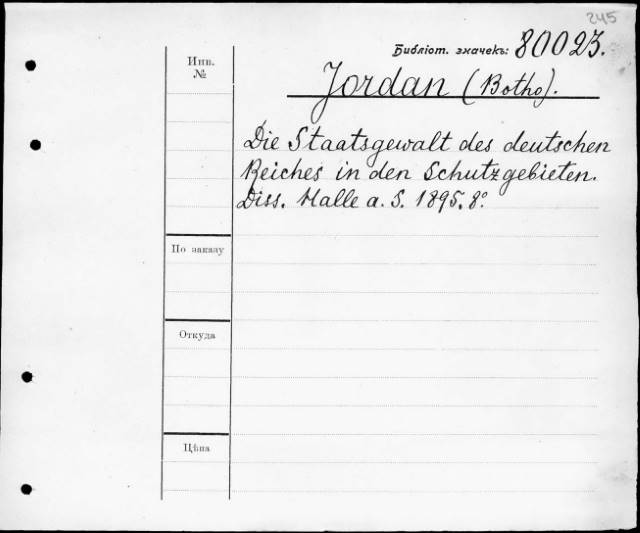 245
Библіот. значекъ: 80023.
Инв.
№
Jordan (Botho).
Die Staatsgewalt des deutschen
Reiches in den Schutzgebieten.
Diss. Halle a. S. 1895. 8°.
По заказу
Откуда
Цѣна